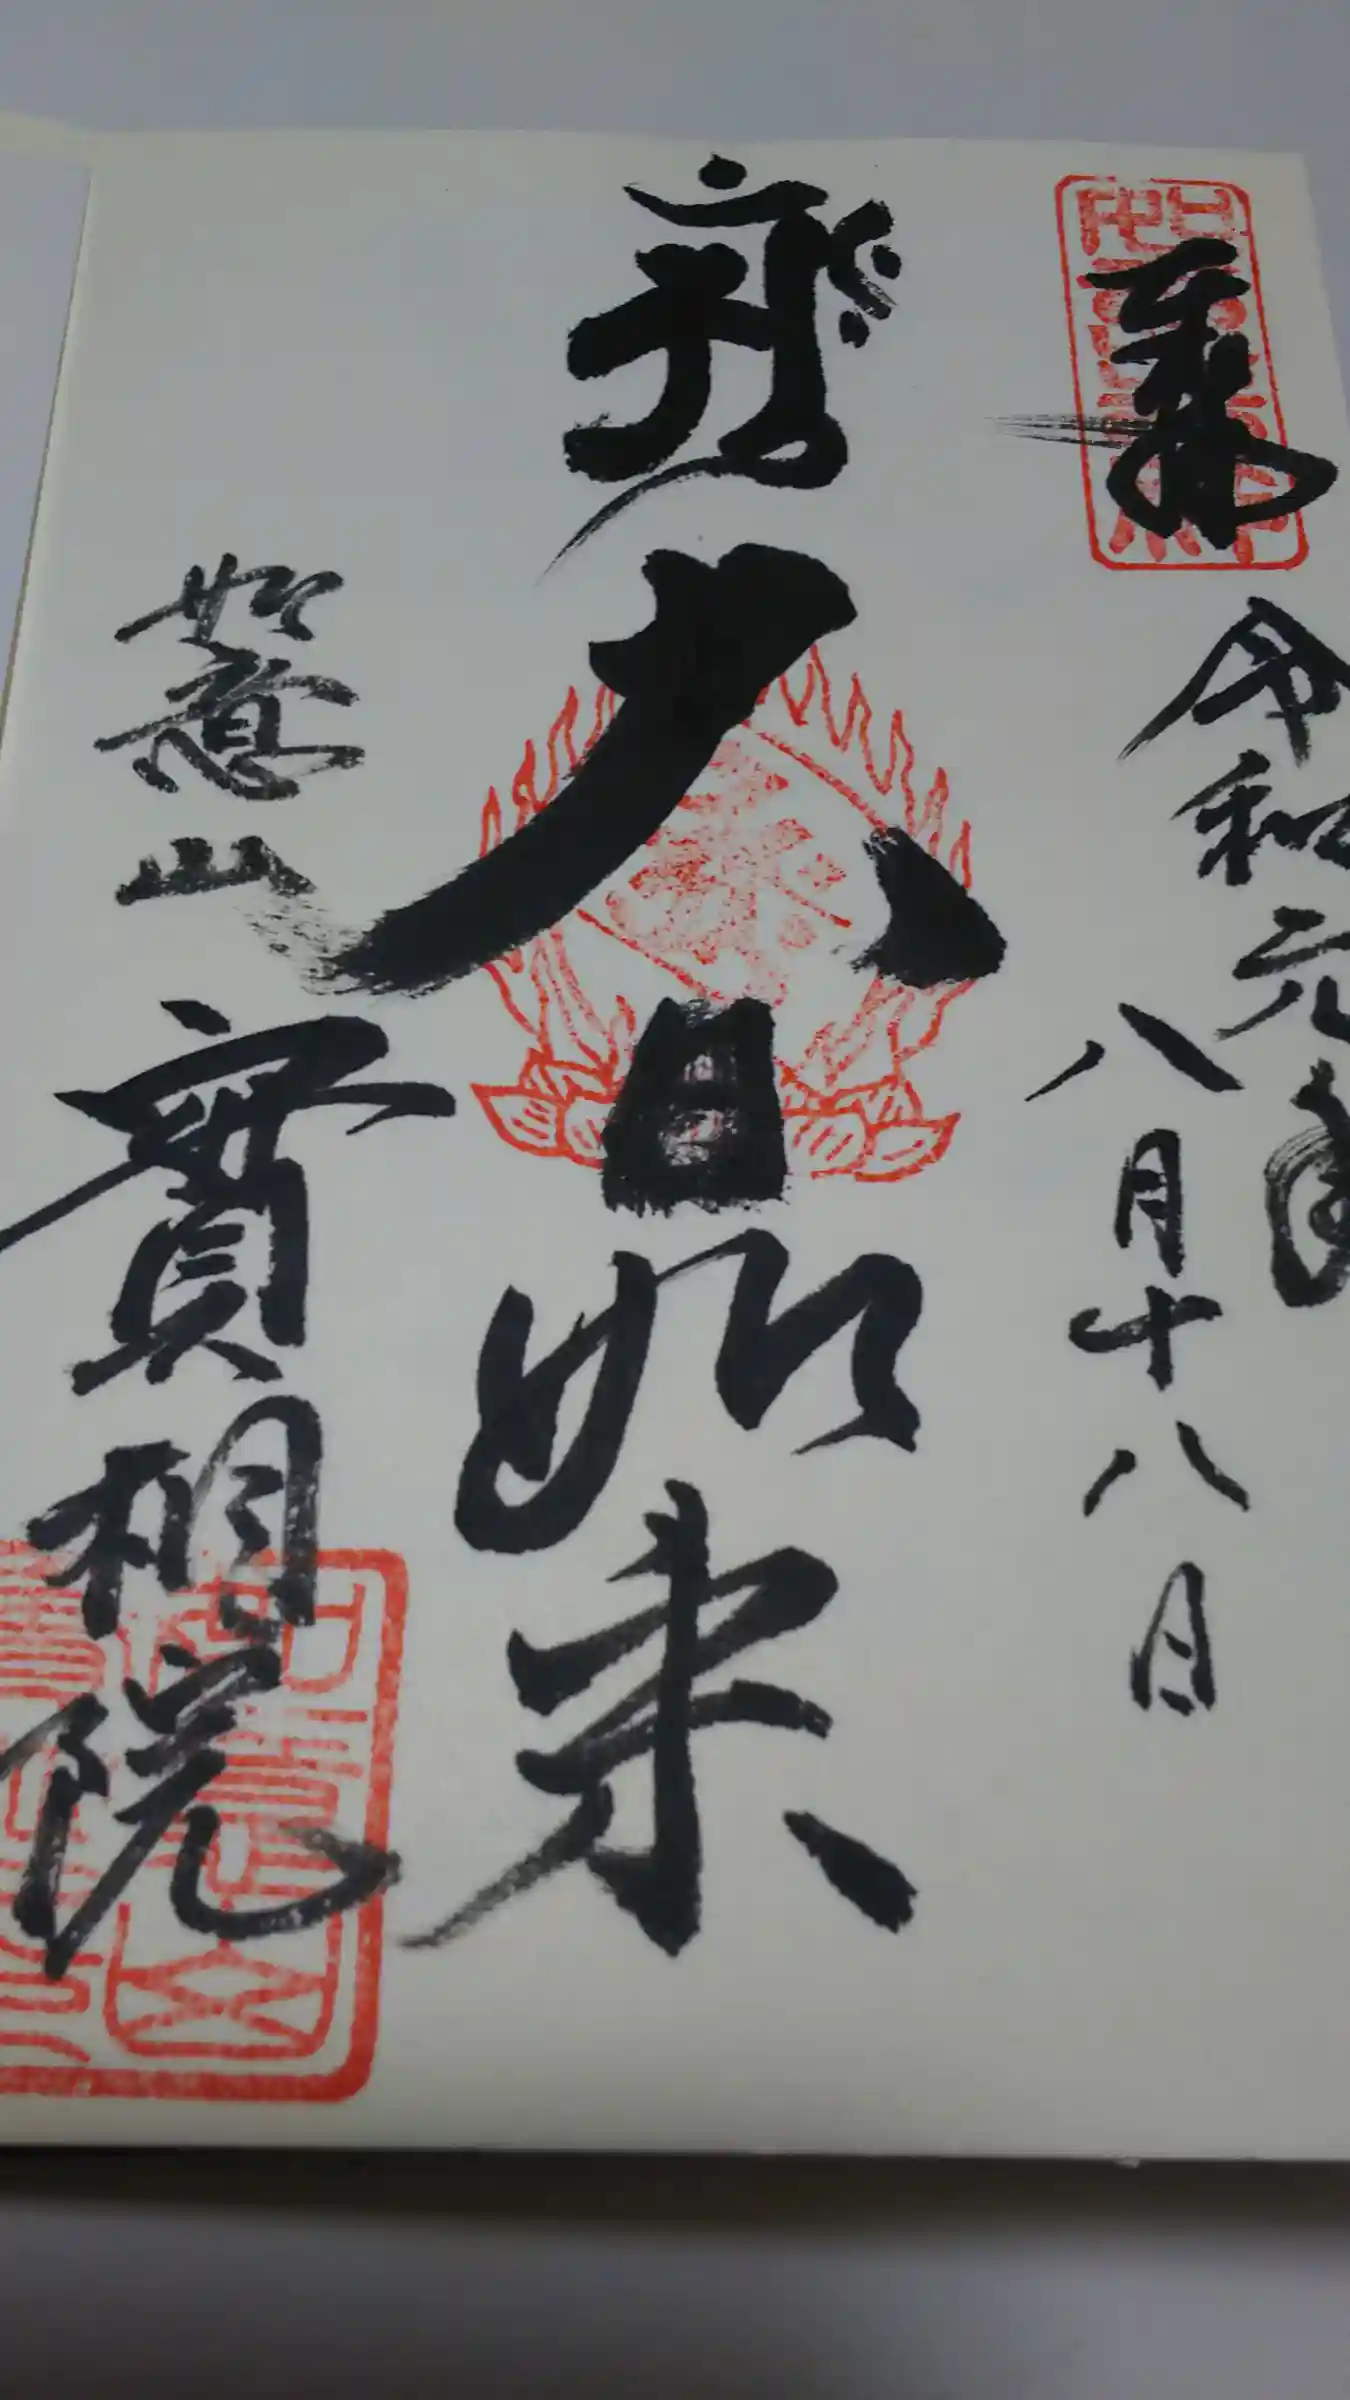 奉拝
令和元年
八月十八日
大日如来
如意山
寶相院